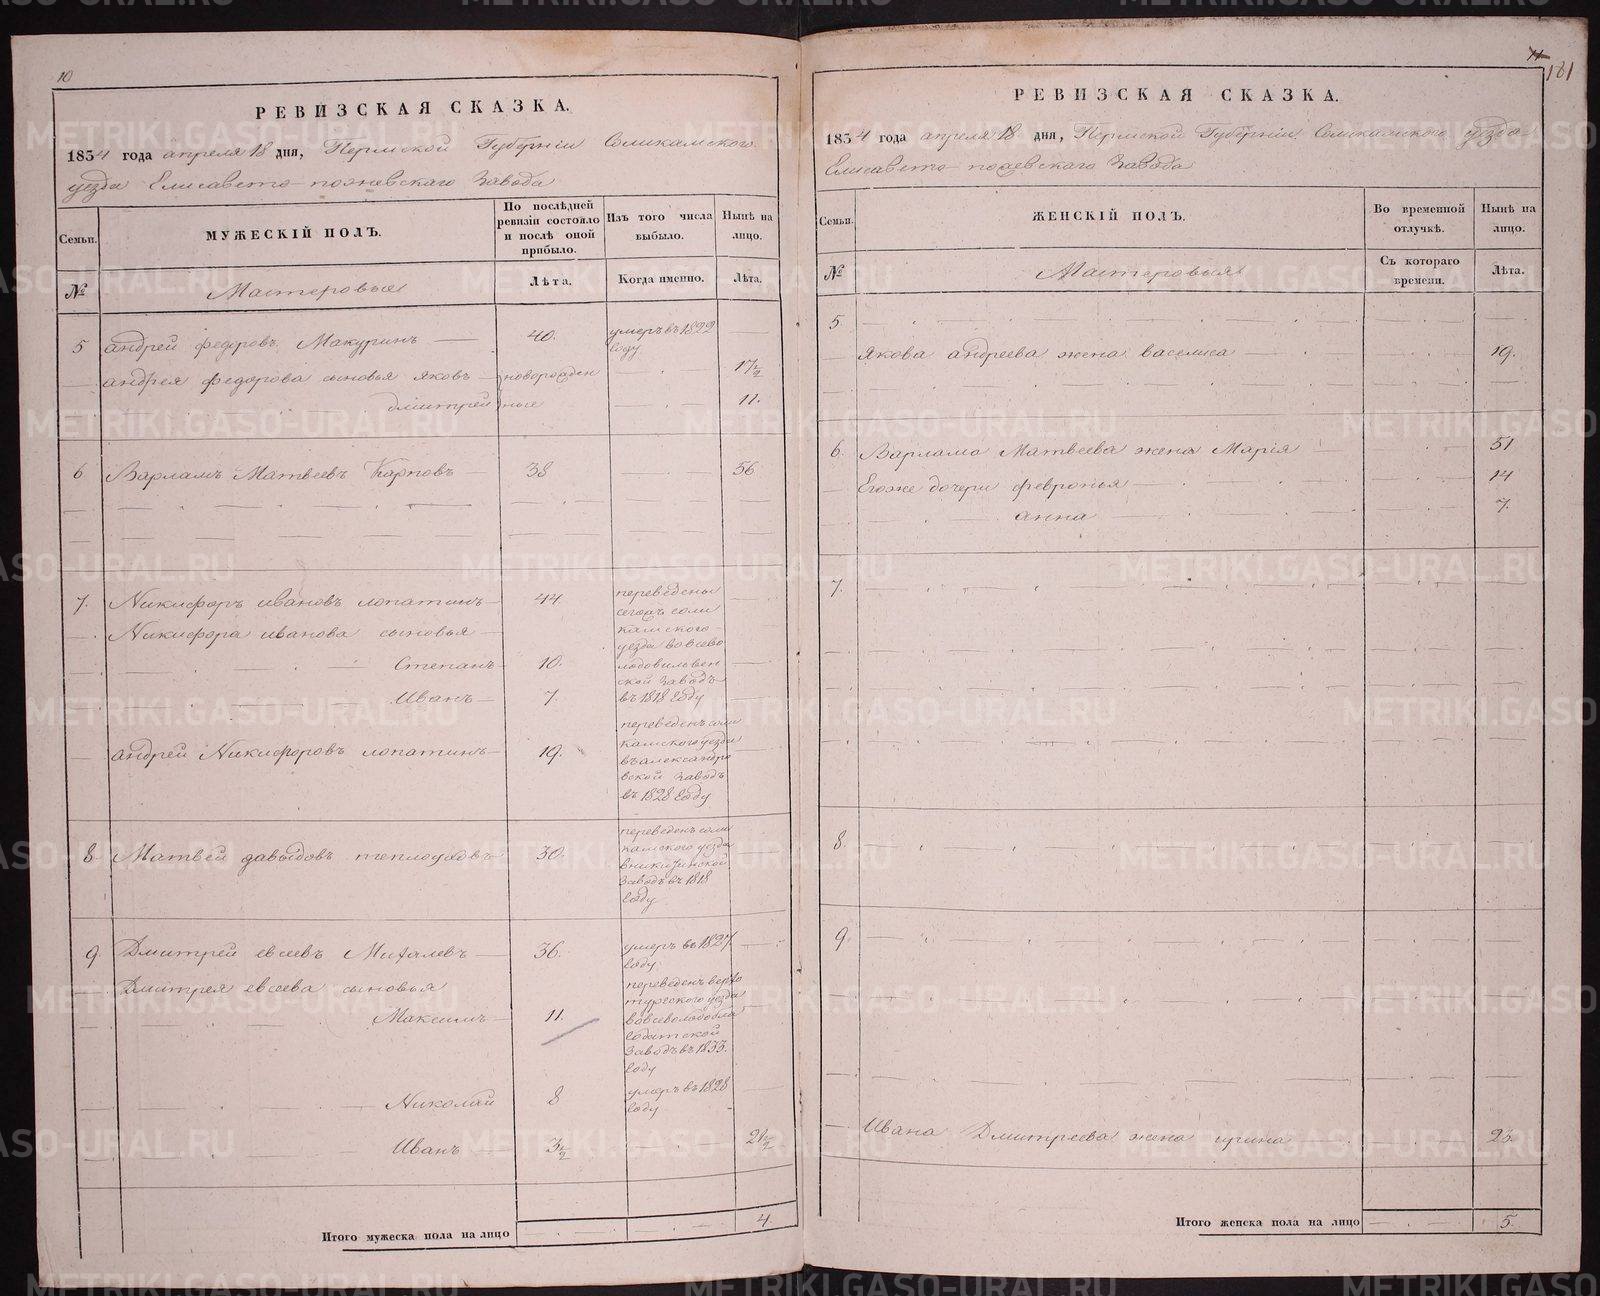 10
РЕВИЗСКАЯ СКАЗКА.
1834 года апреля 18 дня, Пермской Губернiи Соликамскаго
уезда Елисавето-пожевскаго Завода
Семьи.
МУЖЕСКIЙ ПОЛЪ.
По послѣдней ревизiи состояло и послѣ оной прибыло.
Изъ того числа выбыло.
Нынѣ на лицо.
№
Мастеровыя
Лѣта.
Когда именно.
Лѣта.
5 андрей федоровъ Макуринъ 40. умеръ въ 1822 году
андрея федорова сыновья яковъ новорожден 17 1/2
дмитрей ные 11.
6 Варламъ Матвеевъ Карповъ 38 56
7. Никифоръ ивановъ лопатинъ 44. переведены
сегожъ соли
Никифора иванова сыновья камскаго
уезда во всево
Степанъ 10. лодовильвен
ской заводъ
Иванъ 7. въ 1818 году
андрей Никифоровъ лопатинъ 19. переведенъ соли
камскаго уезда
въ александро
вской заводъ
въ 1828 году
8 Матвей давыдовъ теплоуховъ 30. переведенъ соли
камского уезда
в никитинской
заводъ въ 1818
году
9 Дмитрей евсеевъ Михалевъ 36. умеръ въ 1827
году
Дмитрея евсеева сыновья переведенъ верхо
турского уезда
Максимъ 11. во всеволодобла
годатской
заводъ въ 1833.
году
Николай 8 умеръ въ 1828
году
Иванъ 3 1/2 21 1/2
Итого мужеска пола на лицо 4
11
181
РЕВИЗСКАЯ СКАЗКА.
1834 года апреля 18 дня, Пермской Губернiи Соликамскаго уезда
Елисавето пожевскаго Завода
Семьи.
ЖЕНСКIЙ ПОЛЪ.
Во временной отлучкѣ.
Нынѣ на лицо.
№
Мастеровыя
Съ котораго времени.
Лѣта.
5.
Якова андреева жена васелиса 19.
6. Варлама Матвеева жена Марiя 51
Егоже дочери февронья 14
анна 7.
7.
8.
9.
Ивана Дмитреева жена ирина 23.
Итого женска пола на лицо 5.
METRIKI.GASO-URAL.RU